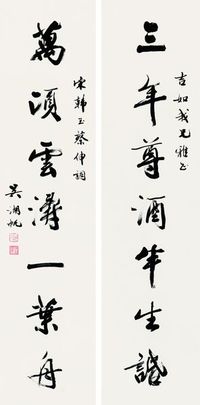 吉如我兄雅正
三年尊酒半生
萬頃雲濤一葉舟
宋韓玉蔡伸詞
吳湖帆